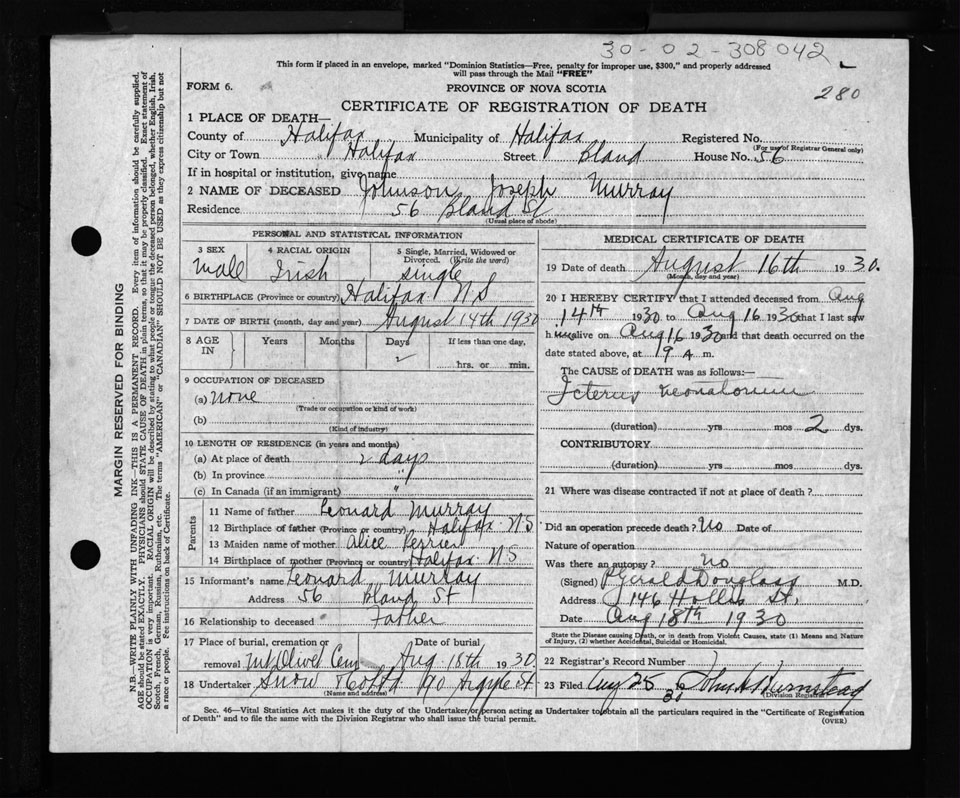 30-02-308042
This form if placed in an envelope, marked "Dominion Statistics—Free, penalty for improper use, $300," and properly addressed
will pass through the Mail "FREE"
280
FORM 6.
PROVINCE OF NOVA SCOTIA
CERTIFICATE OF REGISTRATION OF DEATH
1 PLACE OF DEATH—
County of Halifax Municipality of Halifax Registered No.
(For use of Registrar General only)
City or Town Halifax Street Bland House No. 56
If in hospital or institution, give name
2 NAME OF DECEASED Johnson Joseph Murray
Residence 56 Bland St
(Usual place of abode)
PERSONAL AND STATISTICAL INFORMATION
3 SEX 4 RACIAL ORIGIN 5 Single, Married, Widowed or
Divorced. (Write the word)
male Irish single
6 BIRTHPLACE (Province or country) Halifax N S
7 DATE OF BIRTH (month, day and year) August 14th 1930
8 AGE IN Years Months Days If less than one day,
2 hrs. or min.
9 OCCUPATION OF DECEASED
(a) none
(Trade or occupation or kind of work)
(b)
(Kind of industry)
10 LENGTH OF RESIDENCE (in years and months)
(a) At place of death 2 days
(b) In province "
(c) In Canada (if an immigrant) "
Parents
11 Name of father Leonard Murray
12 Birthplace of father (Province or country) Halifax N S
13 Maiden name of mother Alice
14 Birthplace of mother (Province or country) Halifax N S
15 Informant's name Leonard Murray
Address 56 Bland St
16 Relationship to deceased Father
17 Place of burial, cremation or Date of burial
removal Mt Olivet Cem Aug 18th 1930
18 Undertaker Snow & Co Ltd 90 Argyle St
(Name and address)
MEDICAL CERTIFICATE OF DEATH
19 Date of death August 16th 1930.
(Month, day and year)
20 I HEREBY CERTIFY that I attended deceased from Aug
14th 1930 to Aug 16 1930 that I last saw
him alive on Aug 16 1930 and that death occurred on the
date stated above, at 9 A m.
The CAUSE of DEATH was as follows:—
Icterus Neonatorum
(duration) yrs mos 2 dys.
CONTRIBUTORY
(duration) yrs mos dys.
21 Where was disease contracted if not at place of death?
Did an operation precede death? No Date of
Nature of operation
Was there an autopsy? No
(Signed) Gerald Douglas M.D.
Address 146 Hollis St.
Date Aug 18th 1930
State the Disease causing Death, or in death from Violent Causes, state (1) Means and Nature
of Injury, (2) whether Accidental, Suicidal or Homicidal.
22 Registrar's Record Number
23 Filed Aug 25 30 John A Bumstead
(Division Registrar)
Sec. 46—Vital Statistics Act makes it the duty of the Undertaker or person acting as Undertaker to obtain all the particulars required in the "Certificate of Registration
of Death" and to file the same with the Division Registrar who shall issue the burial permit.
(OVER)
MARGIN RESERVED FOR BINDING
N.B.—WRITE PLAINLY WITH UNFADING INK—THIS IS A PERMANENT RECORD. Every item of information should be carefully supplied.
AGE should be stated EXACTLY. PHYSICIANS should STATE CAUSE OF DEATH in plain terms, so that it may be properly classified. Exact statement of
OCCUPATION is very important. RACIAL ORIGIN will be described by stating to what people or tongue the deceased person belonged, whether English, Irish,
Scotch, French, German, Russian, Ruthenian, etc. The terms "AMERICAN" or "CANADIAN" SHOULD NOT BE USED as they express citizenship but not
a race or people. Fee instructions on back of Certificate.